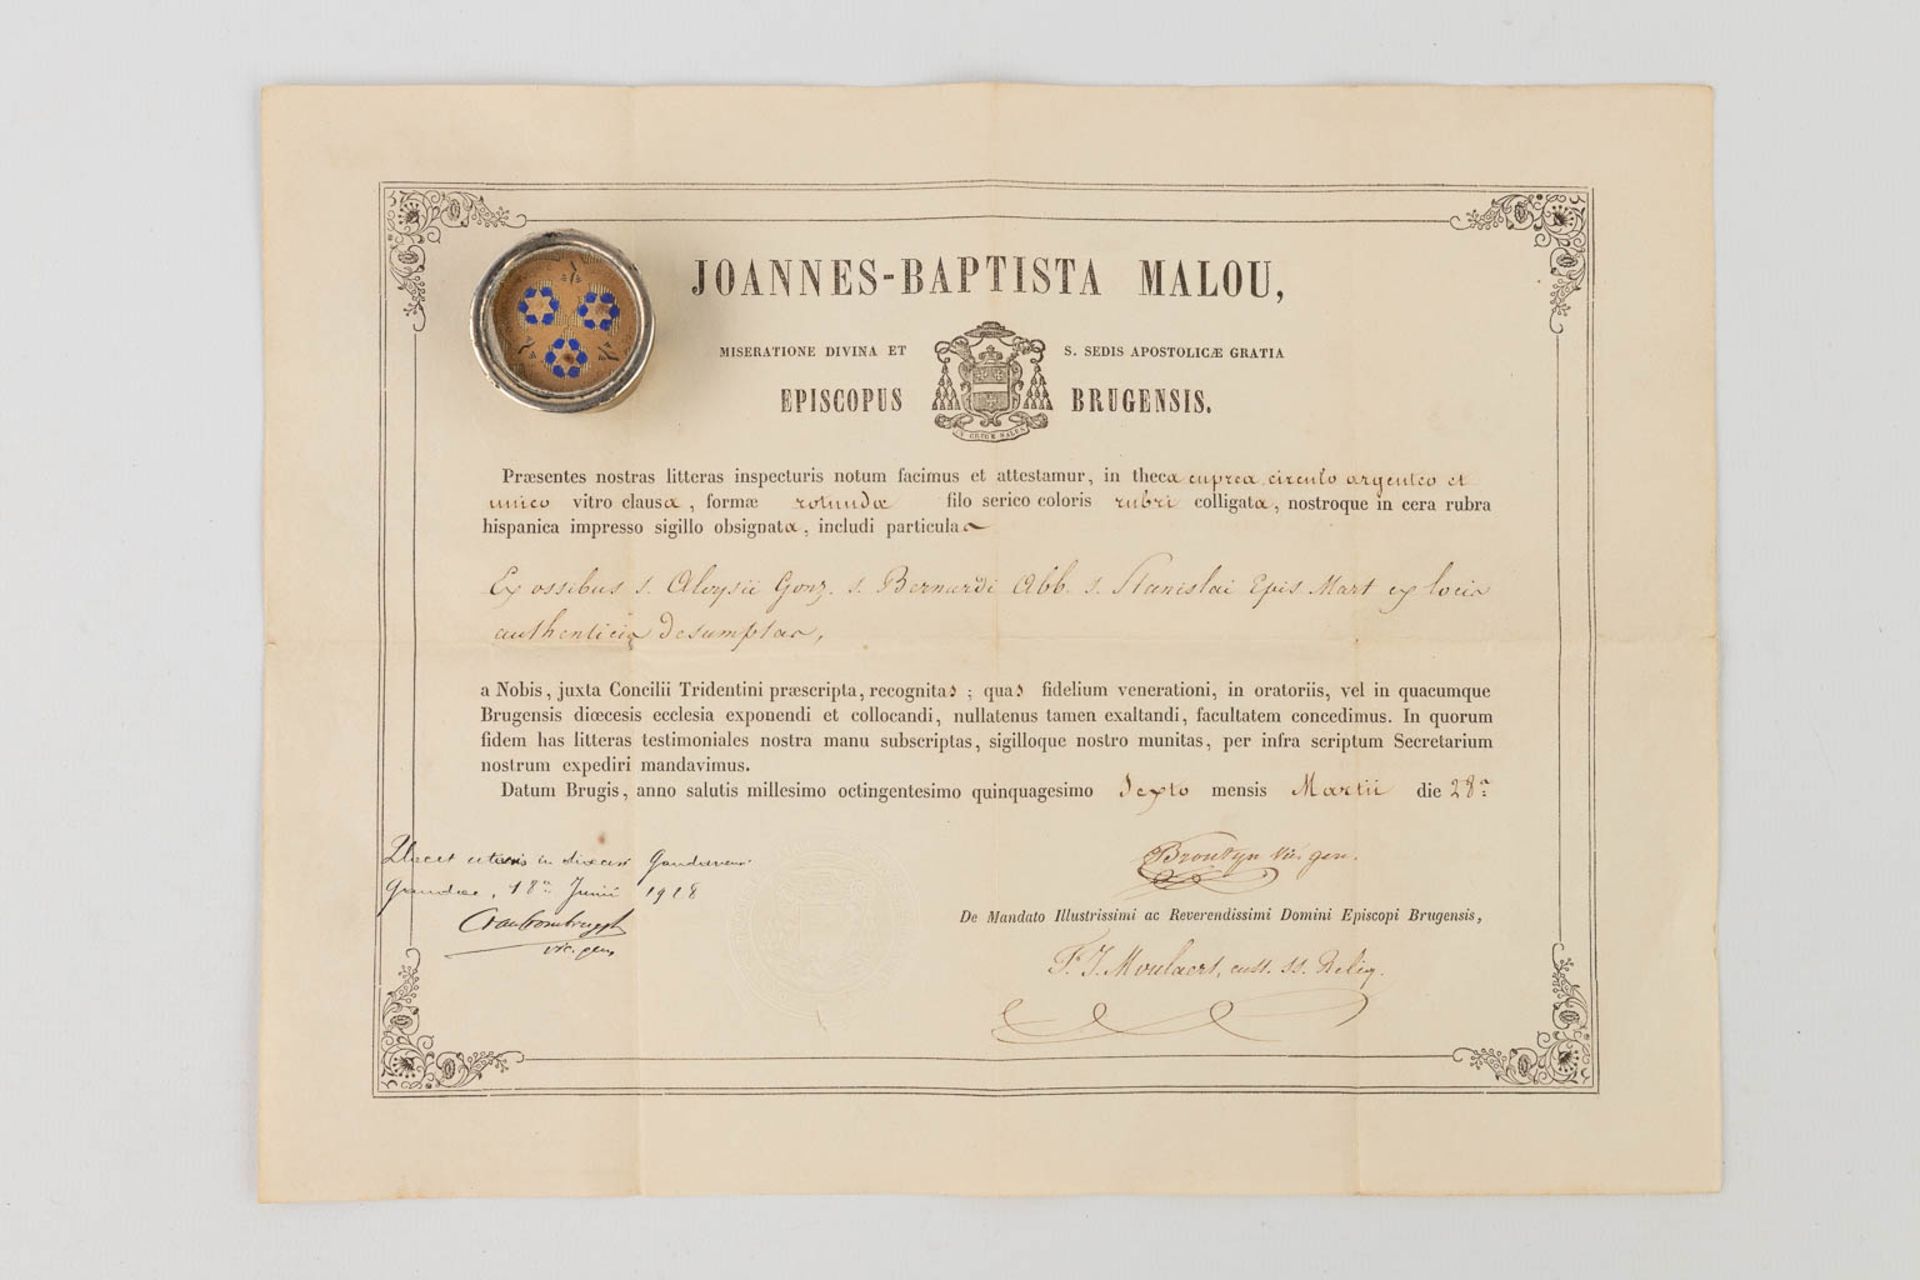 JOANNES-BAPTISTA MALOU,
MISERATIONE DIVINA ET S. SEDIS APOSTOLICÆ GRATIA
EPISCOPUS BRUGENSIS.
Præsentes nostras litteras inspecturis notum facimus et attestamur, in theca cuprea circulo argenteo et
unico vitro clausa, formæ rotundæ filo serico coloris rubri colligata, nostroque in cera rubra
hispanica impresso sigillo obsignata, includi particulas
Ex ossibus s. Aloysii Gonz. s. Bernardi Abb. s. Stanislai Epis Mart ex locis
authenticis desumptas,
a Nobis, juxta Concilii Tridentini præscripta, recognitas; quas fidelium venerationi, in oratoriis, vel in quacumque
Brugensis diœcesis ecclesia exponendi et collocandi, nullatenus tamen exaltandi, facultatem concedimus. In quorum
fidem has litteras testimoniales nostra manu subscriptas, sigilloque nostro munitas, per infra scriptum Secretarium
nostrum expediri mandavimus.
Datum Brugis, anno salutis millesimo octingentesimo quinquagesimo Sexto mensis Martii die 28ª
in
Gandae, 18ª Junii 1928
vic. gen.
vic. gen.
De Mandato Illustrissimi ac Reverendissimi Domini Episcopi Brugensis,
F. J. Moulaert, cust. ss. Reliq.